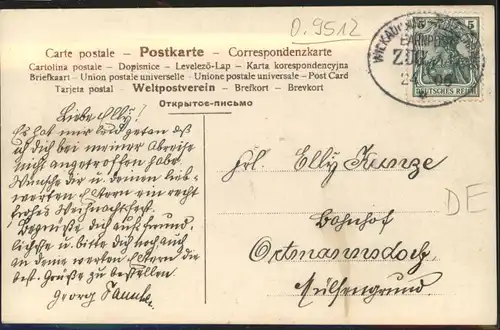 D.9512
Carte postale – Postkarte – Correspondenzkarte
Cartolina postale – Dopisnice – Levelező-Lap – Karta korespondencyjna
Briefkaart – Union postale universelle – Unione postale universale – Post Card
Tarjeta postal – Weltpostverein – Brefkort – Brevkort
Открытое-письмо
5 5
BAHNPOST
ZUG
DEUTSCHES REICH
Liebe Elly!
Es hat mir Leid getan daß
ich dich bei meiner Abreise
nicht angetroffen habe.
Wünsche dir u. deinen lieb-
werten Eltern ein recht
frohes Weihnachtsfest.
Begrüße dich auf's freund-
lichste u. bitte dich noch auch
an deine werten Eltern die
best. Grüße zu bestellen.
Georg
Frl. Elly Kunze
Bahnhof
Ortmannsdorf
Mülsengrund.
DE